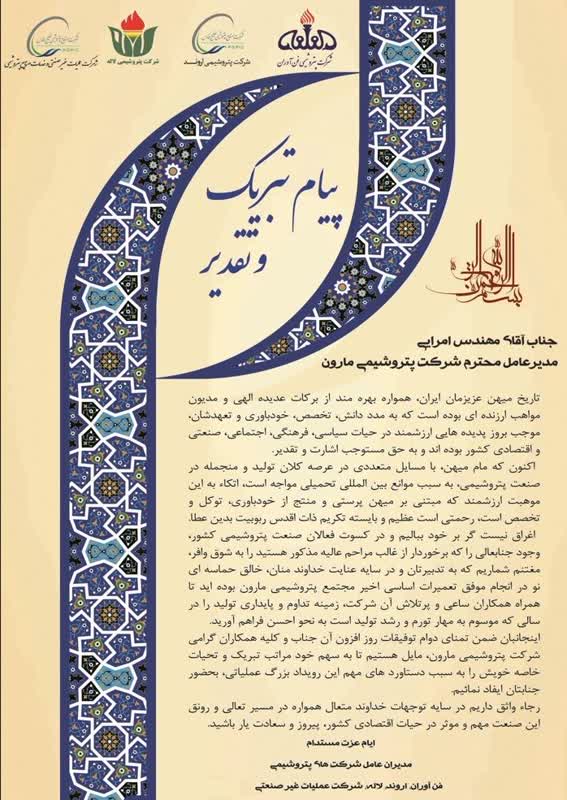 شرکت پتروشیمی فن آوران
شرکت پتروشیمی اروند
شرکت پتروشیمی لاله
شرکت عملیات غیرصنعتی و خدمات صنایع پتروشیمی
پیام تبریک
و تقدیر
بسم الله الرحمن الرحیم
جناب آقای مهندس امرایی
مدیرعامل محترم شرکت پتروشیمی مارون
تاریخ میهن عزیزمان ایران، همواره بهره مند از برکات عدیده الهی و مدیون
مواهب ارزنده ای بوده است که به مدد دانش، تخصص، خودباوری و تعهدشان،
موجب بروز پدیده هایی ارزشمند در حیات سیاسی، فرهنگی، اجتماعی، صنعتی
و اقتصادی کشور بوده اند و به حق مستوجب اشارت و تقدیر.
اکنون که مام میهن، با مسایل متعددی در عرصه کلان تولید و منجمله در
صنعت پتروشیمی، به سبب موانع بین المللی تحمیلی مواجه است، اتکاء به این
موهبت ارزشمند که مبتنی بر میهن پرستی و منتج از خودباوری، توکل و
تخصص است، رحمتی است عظیم و بایسته تکریم ذات اقدس ربوبیت بدین عطا.
اغراق نیست گر بر خود ببالیم و در کسوت فعالان صنعت پتروشیمی کشور،
وجود جنابعالی را که برخوردار از غالب مراحم عالیه مذکور هستید را به شوق وافر،
مغتنم شماریم که به تدبیرتان و در سایه عنایت خداوند منان، خالق حماسه ای
نو در انجام موفق تعمیرات اساسی اخیر مجتمع پتروشیمی مارون بوده اید تا
همراه همکاران ساعی و پرتلاش آن شرکت، زمینه تداوم و پایداری تولید را در
سالی که موسوم به مهار تورم و رشد تولید است به نحو احسن فراهم آورید.
اینجانبان ضمن تمنای دوام توفیقات روز افزون آن جناب و کلیه همکاران گرامی
شرکت پتروشیمی مارون، مایل هستیم تا به سهم خود مراتب تبریک و تحیات
خاصه خویش را به سبب دستاورد های مهم این رویداد بزرگ عملیاتی، بحضور
جنابتان ایفاد نمائیم.
رجاء واثق داریم در سایه توجهات خداوند متعال همواره در مسیر تعالی و رونق
این صنعت مهم و موثر در حیات اقتصادی کشور، پیروز و سعادت یار باشید.
ایام عزت مستدام
مدیران عامل شرکت های پتروشیمی
فن آوران، اروند، لاله، شرکت عملیات غیر صنعتی